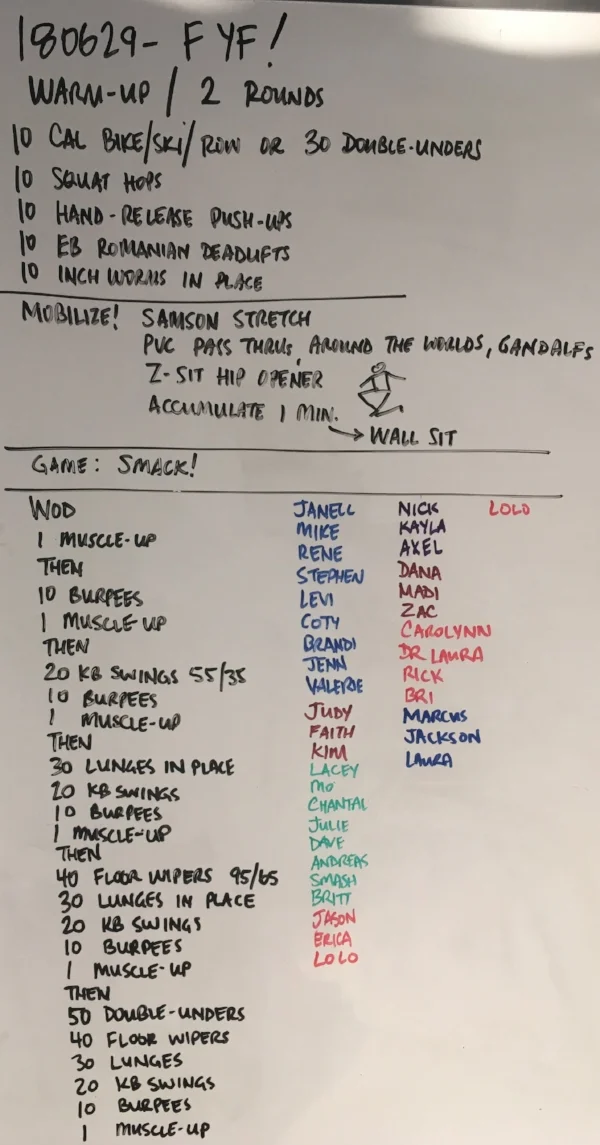 180629- FYF!
WARM-UP / 2 ROUNDS
10 CAL BIKE/SKI/ROW OR 30 DOUBLE-UNDERS
10 SQUAT HOPS
10 HAND-RELEASE PUSH-UPS
10 EB ROMANIAN DEADLIFTS
10 INCH WORMS IN PLACE
MOBILIZE! SAMSON STRETCH
PVC PASS THRUS, AROUND THE WORLDS, GANDALFS
Z-SIT HIP OPENER
ACCUMULATE 1 MIN.
WALL SIT
GAME: SMACK!
WOD
1 MUSCLE-UP
THEN
10 BURPEES
1 MUSCLE-UP
THEN
20 KB SWINGS 55/35
10 BURPEES
1 MUSCLE-UP
THEN
30 LUNGES IN PLACE
20 KB SWINGS
10 BURPEES
1 MUSCLE-UP
THEN
40 FLOOR WIPERS 95/65
30 LUNGES IN PLACE
20 KB SWINGS
10 BURPEES
1 MUSCLE-UP
THEN
50 DOUBLE-UNDERS
40 FLOOR WIPERS
30 LUNGES
20 KB SWINGS
10 BURPEES
1 MUSCLE-UP
JANELL
MIKE
RENE
STEPHEN
LEVI
COTY
BRANDI
JENN
VALERIE
JUDY
FAITH
KIM
LACEY
MO
CHANTAL
JULIE
DAVE
ANDREAS
SMASH
BRITT
JASON
ERICA
LOLO
NICK
KAYLA
AXEL
DANA
MADI
ZAC
CAROLYNN
DR LAURA
RICK
BRI
MARCUS
JACKSON
LAURA
LOLO